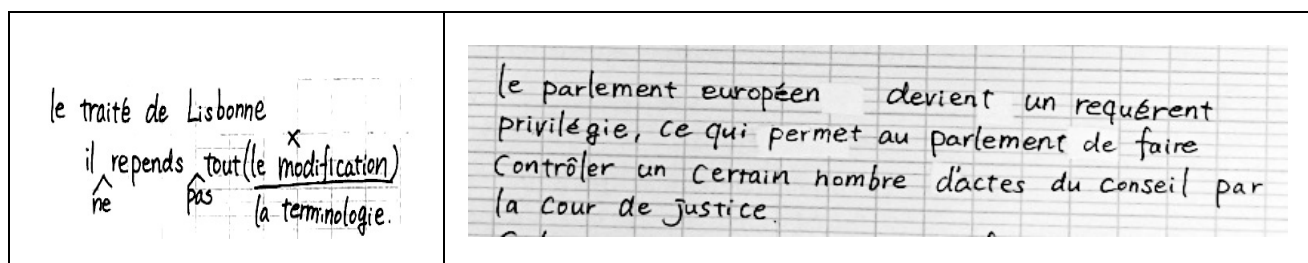 le traité de Lisbonne
x
il repends tout (le modification)
ne pas la terminologie.
le parlement européen devient un requérent
privilégie, ce qui permet au parlement de faire
Contrôler un certain nombre d'actes du conseil par
la cour de justice.